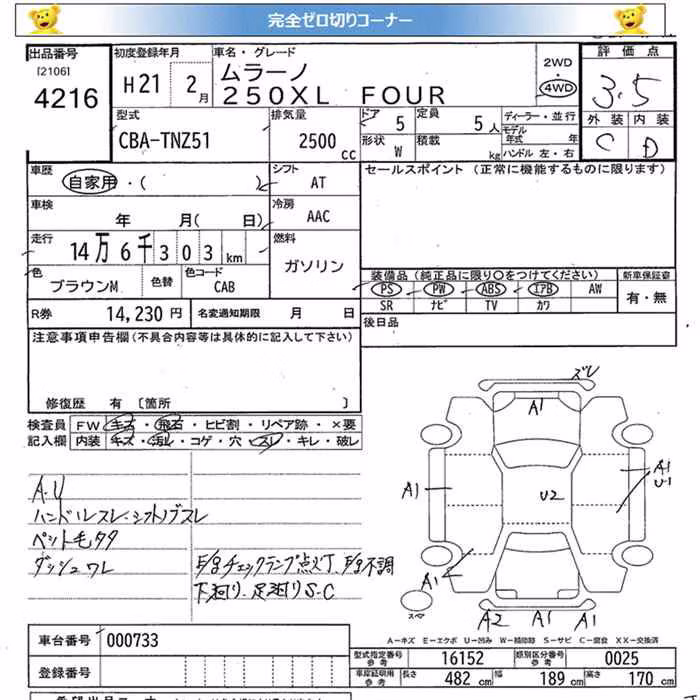 完全ゼロ切りコーナー
出品番号
[2106]
4216
初度登録年月
H21 2月
車名・グレード
ムラーノ
250XL FOUR
2WD
4WD
評価点
3.5
外装 内装
C D
型式
CBA-TNZ51
排気量
2500 cc
ドア 5
定員 5人
形状 W
積載 kg
ディーラー・並行
モデル年式 年
ハンドル 左・右
車歴
自家用・( )
シフト AT
セールスポイント (正常に機能するものに限ります)
車検
年 月( 日)
冷房 AAC
走行
14万6千303km
燃料
ガソリン
色
ブラウンM
色替
色コード
CAB
装備品 (純正品に限り○をつけてください)
新車保証書
PS PW ABS エアB AW
SR ナビ TV カワ
有・無
R券 14,230円
名変通知期限 月 日
後日品
注意事項申告欄 (不具合内容等は具体的に記入して下さい)
修復歴 有 〔箇所 〕
検査員記入欄
FW キズ・飛石・ヒビ割・リペア跡・×要
内装 キズ・汚れ・コゲ・穴・スレ・キレ・破レ
A.U
ハンドルスレ・シフトノブスレ
ペット毛タタ
ダッシュワレ
E/Gチェックランプ点灯、E/G不調
下廻り、足廻りS-C
ズレ
A1
A1
U2
A1
U-1
A1
スペア
A2 A1 A1
A－キズ E－エクボ U－凹み W－補修跡 S－サビ C－腐食 XX－交換済
車台番号 000733
登録番号
型式指定番号 参考 16152
類別区分番号 参考 0025
車庫証明用 参考 長さ 482 cm 幅 189 cm 高さ 170 cm